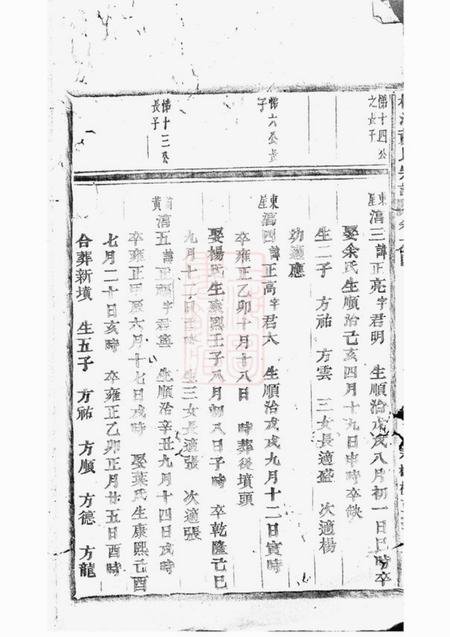 悌十四公之長子
東星 濱三 諱正亮字君明 生順治戊戌八月初一日巳時卒
娶余氏生順治己亥四月十九日申時卒缺
生二子 方祐 方雲 三女長適盛 次適楊
幼適應
悌六公長子
東星 濱四 諱正高字君大 生順治戊戌九月十二日寅時
卒雍正乙卯十月十八日 時葬後墳頭
娶楊氏生康熙壬子八月初八日子時 卒乾隆己巳
九月十二日 時 生三女長適張 次適張
悌十三公長子
前黃 濱五 諱正 字君 生順治辛丑九月十四日戌時
卒雍正甲辰六月十七日戌時 娶葉氏生康熙己酉
七月二十日亥時 卒雍正乙卯正月廿五日酉時
合葬新墳 生五子 方祐 方順 方德 方龍